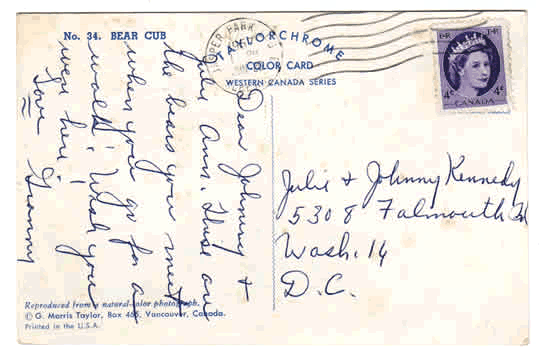 No. 34. BEAR CUB
TAYLORCHROME
COLOR CARD
WESTERN CANADA SERIES
PER PARK
E II R
4¢ 4¢
CANADA
Dear Johnny +
Julie Ann. These are
the bears you meet
when you go for a
walk! Wish you
were here.
Love
Granny
Julie + Johnny Kennedy
5308 Falmouth
Wash. 16
D.C.
Reproduced from a natural-color photograph.
© G. Morris Taylor, Box 465, Vancouver, Canada.
Printed in the U.S.A.